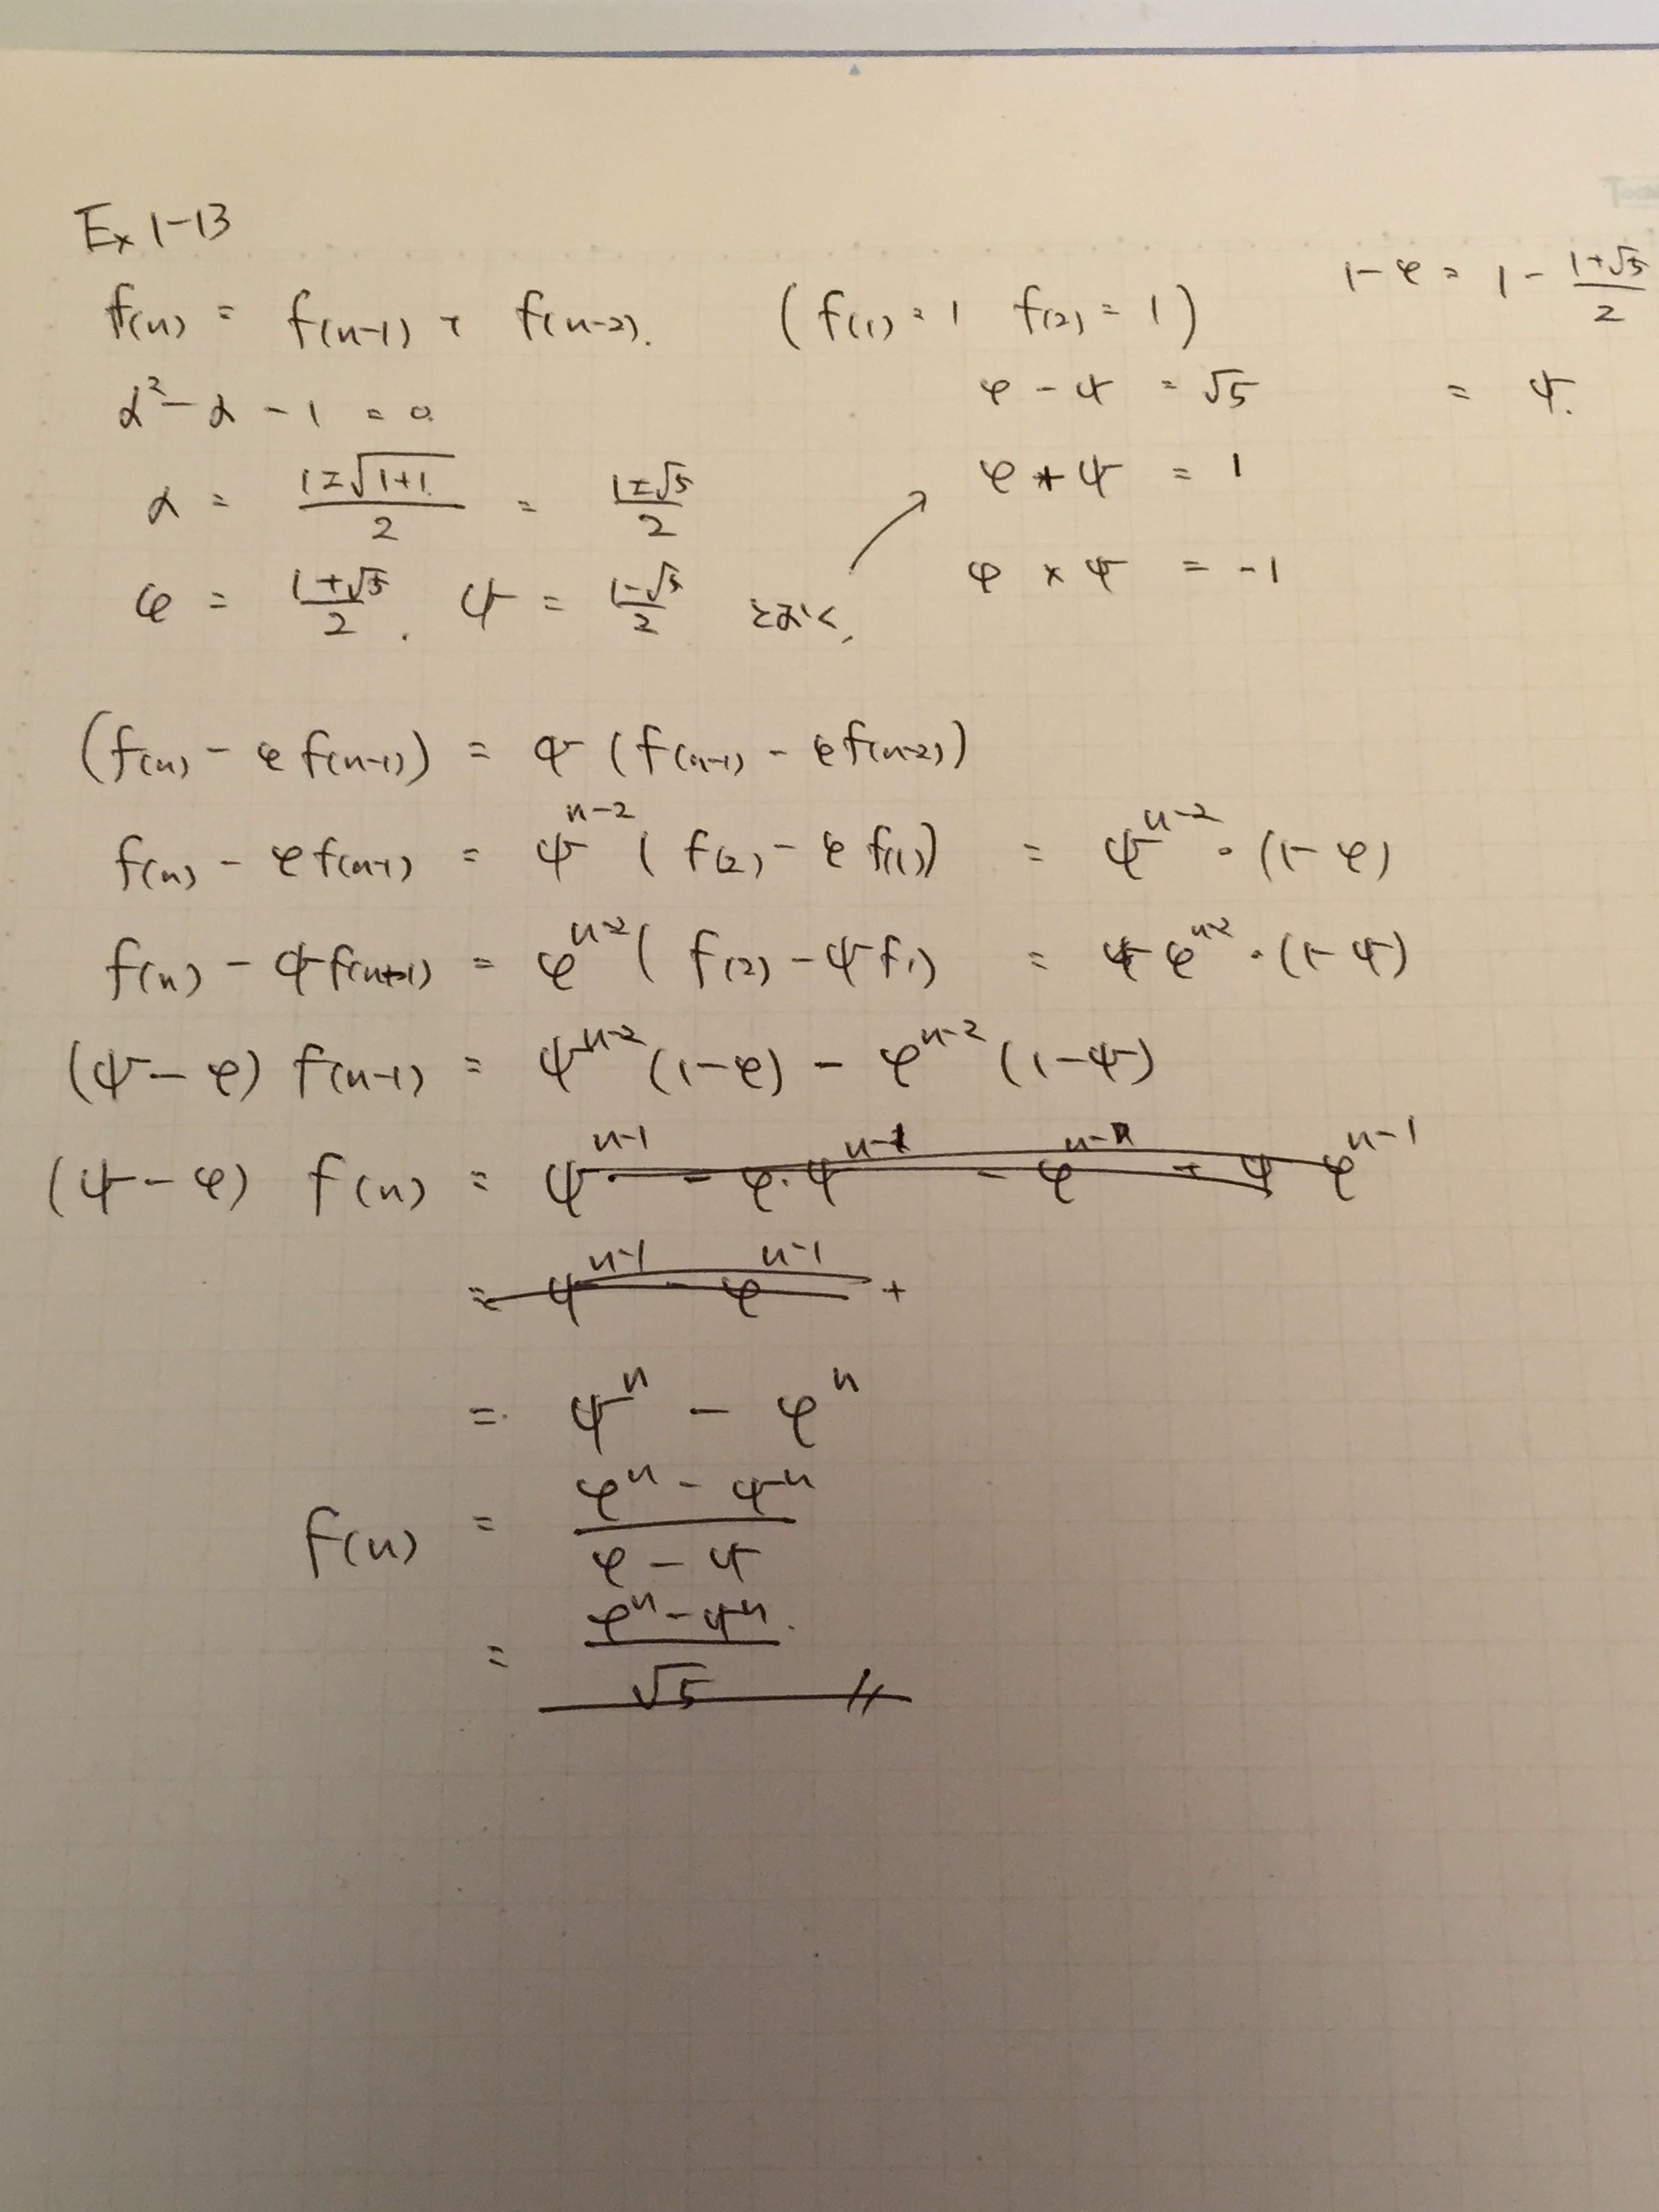 Ex 1-13
f(n) = f(n-1) + f(n-2). (f(1) = 1 f(2) = 1)
1-φ = 1 - (1+√5)/2
= ψ.
α² - α - 1 = 0.
φ - ψ = √5
α = (1±√1+1)/2 = (1±√5)/2
φ + ψ = 1
φ = (1+√5)/2, ψ = (1-√5)/2 とおく,
φ × ψ = -1
(f(n) - φf(n-1)) = ψ(f(n-1) - φf(n-2))
f(n) - φf(n-1) = ψ^(n-2) (f(2) - φf(1)) = ψ^(n-2)・(1-φ)
f(n) - ψf(n-1) = φ^(n-2) (f(2) - ψf1) = φ^(n-2)・(1-ψ)
(ψ-φ) f(n-1) = ψ^(n-2) (1-φ) - φ^(n-2) (1-ψ)
(ψ-φ) f(n) = ψ^(n-1) - φ・ψ^(n-1) - φ^(n-1) + ψ φ^(n-1)
= ψ^(n-1) - φ^(n-1) +
= ψ^n - φ^n
f(n) = (φ^n - ψ^n)/(φ - ψ)
= (φ^n - ψ^n)/√5 //